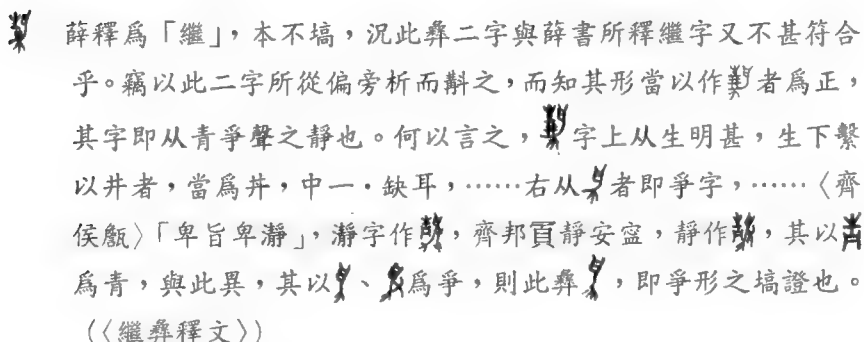 薛釋為「繼」，本不塙，況此彝二字與薛書所釋繼字又不甚符合
乎。竊以此二字所從偏旁析而斠之，而知其形當以作者為正，
其字即从青爭聲之靜也。何以言之，字上从生明甚，生下繫
以井者，當為丼，中一·缺耳，……右从者即爭字，……〈齊
侯甗〉「卑旨卑瀞」，瀞字作，齊邦𩑋靜安寍，靜作，其以
為青，與此異，其以、為爭，則此彝，即爭形之塙證也。
（〈繼彝釋文〉）